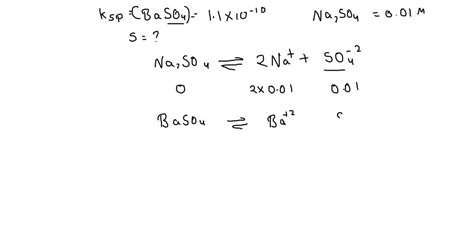 Ksp = (BaSO4) = 1.1 × 10^-10    Na2SO4 = 0.01 M
S = ?
Na2SO4 ⇌ 2Na^+ + SO4^-2
0    2×0.01    0.01
BaSO4 ⇌ Ba^+2